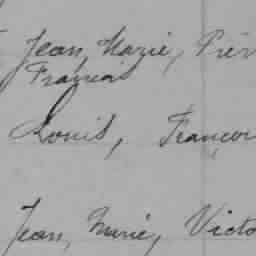 Jean, Marie, Pier
François
Louis, Françoi
Jean, Marie, Victo